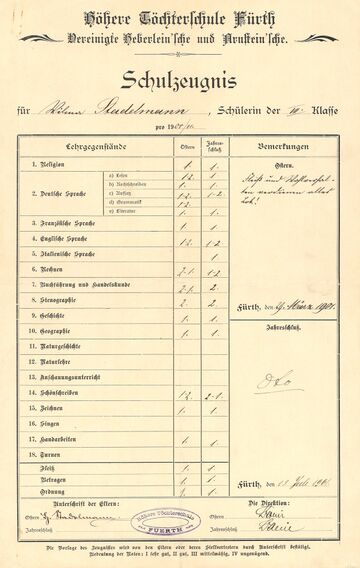 Höhere Töchterschule Fürth
Vereinigte Heberlein'sche und Arnstein'sche.
Schulzeugnis
für Wilma Stadelmann, Schülerin der VI. Klasse
pro 1901/
Lehrgegenstände Ostern Jahresschluß Bemerkungen
1. Religion 1. 1.
Ostern.
2. Deutsche Sprache
a) Lesen 1.2. 1
b) Rechtschreiben 1. 1.
c) Aufsatz 1.2. 1-2
d) Grammatik 1.2.
e) Literatur 1. 1.
Fleiß und Wohlverhalten verdienen alles Lob!
3. Französische Sprache 1. 1.
4. Englische Sprache 1.2. 1.2
5. Italienische Sprache 1
6. Rechnen 2.1. 1.2
7. Buchführung und Handelskunde 2.1. 2.
8. Stenographie 2. 2.
Fürth, den 29. März 1901.
9. Geschichte 1. 1.
10. Geographie 1. 1.
Jahresschluß.
11. Naturgeschichte
12. Naturlehre
13. Anschauungsunterricht
14. Schönschreiben 1.2. 2-1.
15. Zeichnen 1. 1.
16. Singen
17. Handarbeiten 1. 1.
18. Turnen
Fleiß 1. 1.
Betragen 1. 1.
Ordnung 1. 1.
Fürth, den 13. Juli 1901.
Unterschrift der Eltern:
Die Direktion:
Ostern Stadelmann
Ostern
Jahresschluß
Jahresschluß
Höhere Töchterschule
FUERTH
Die Vorlage des Zeugnisses wird von den Eltern oder deren Stellvertretern durch Unterschrift bestätigt.
Bedeutung der Noten: I sehr gut, II gut, III mittelmäßig, IV ungenügend.